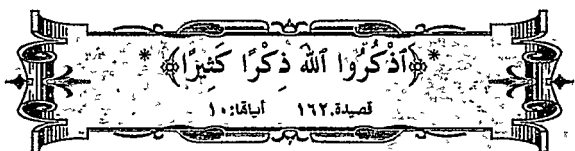 * ﴿ٱذْكُرُوا ٱللّٰهَ ذِكْرًا كَثِيرًا﴾ *
قصيدة.١٦٢ أبياتها:١٠